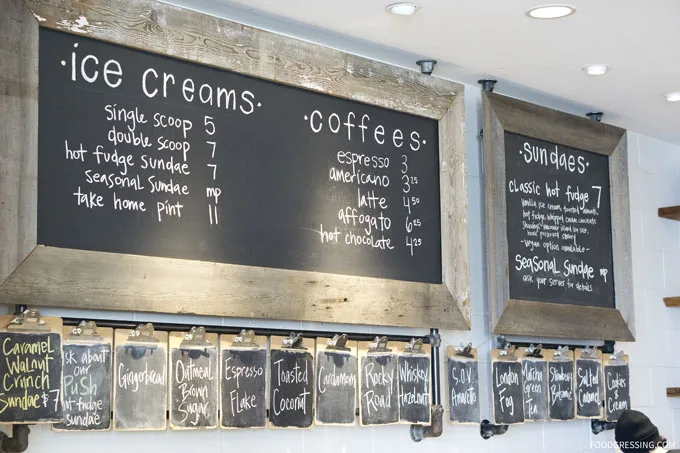 ·ice creams·
single scoop 5
double scoop 7
hot fudge sundae 7
seasonal sundae mp
take home pint 11
·coffees·
espresso 3
americano 3.25
latte 4.50
affogato 6.25
hot chocolate 4.25
·sundaes·
classic hot fudge 7
vanilla ice cream, toasted almonds,
hot fudge, whipped cream, amarena
-vegan option available-
seasonal sundae mp
ask your server for details
Caramel
Walnut
Crunch
Sundae $7
ask about
our
PUSH
hot fudge
sundae
Gingerbread
Oatmeal
Brown
Sugar
Espresso
Flake
Toasted
Coconut
Cardamom
Rocky
Road
Whiskey
Hazelnut
S.O.Y
Amaretto
London
Fog
Matcha
Green
Tea
Strawberry
Balsamic
Salted
Caramel
Cookies
&
Cream
FOODGRESSING.COM